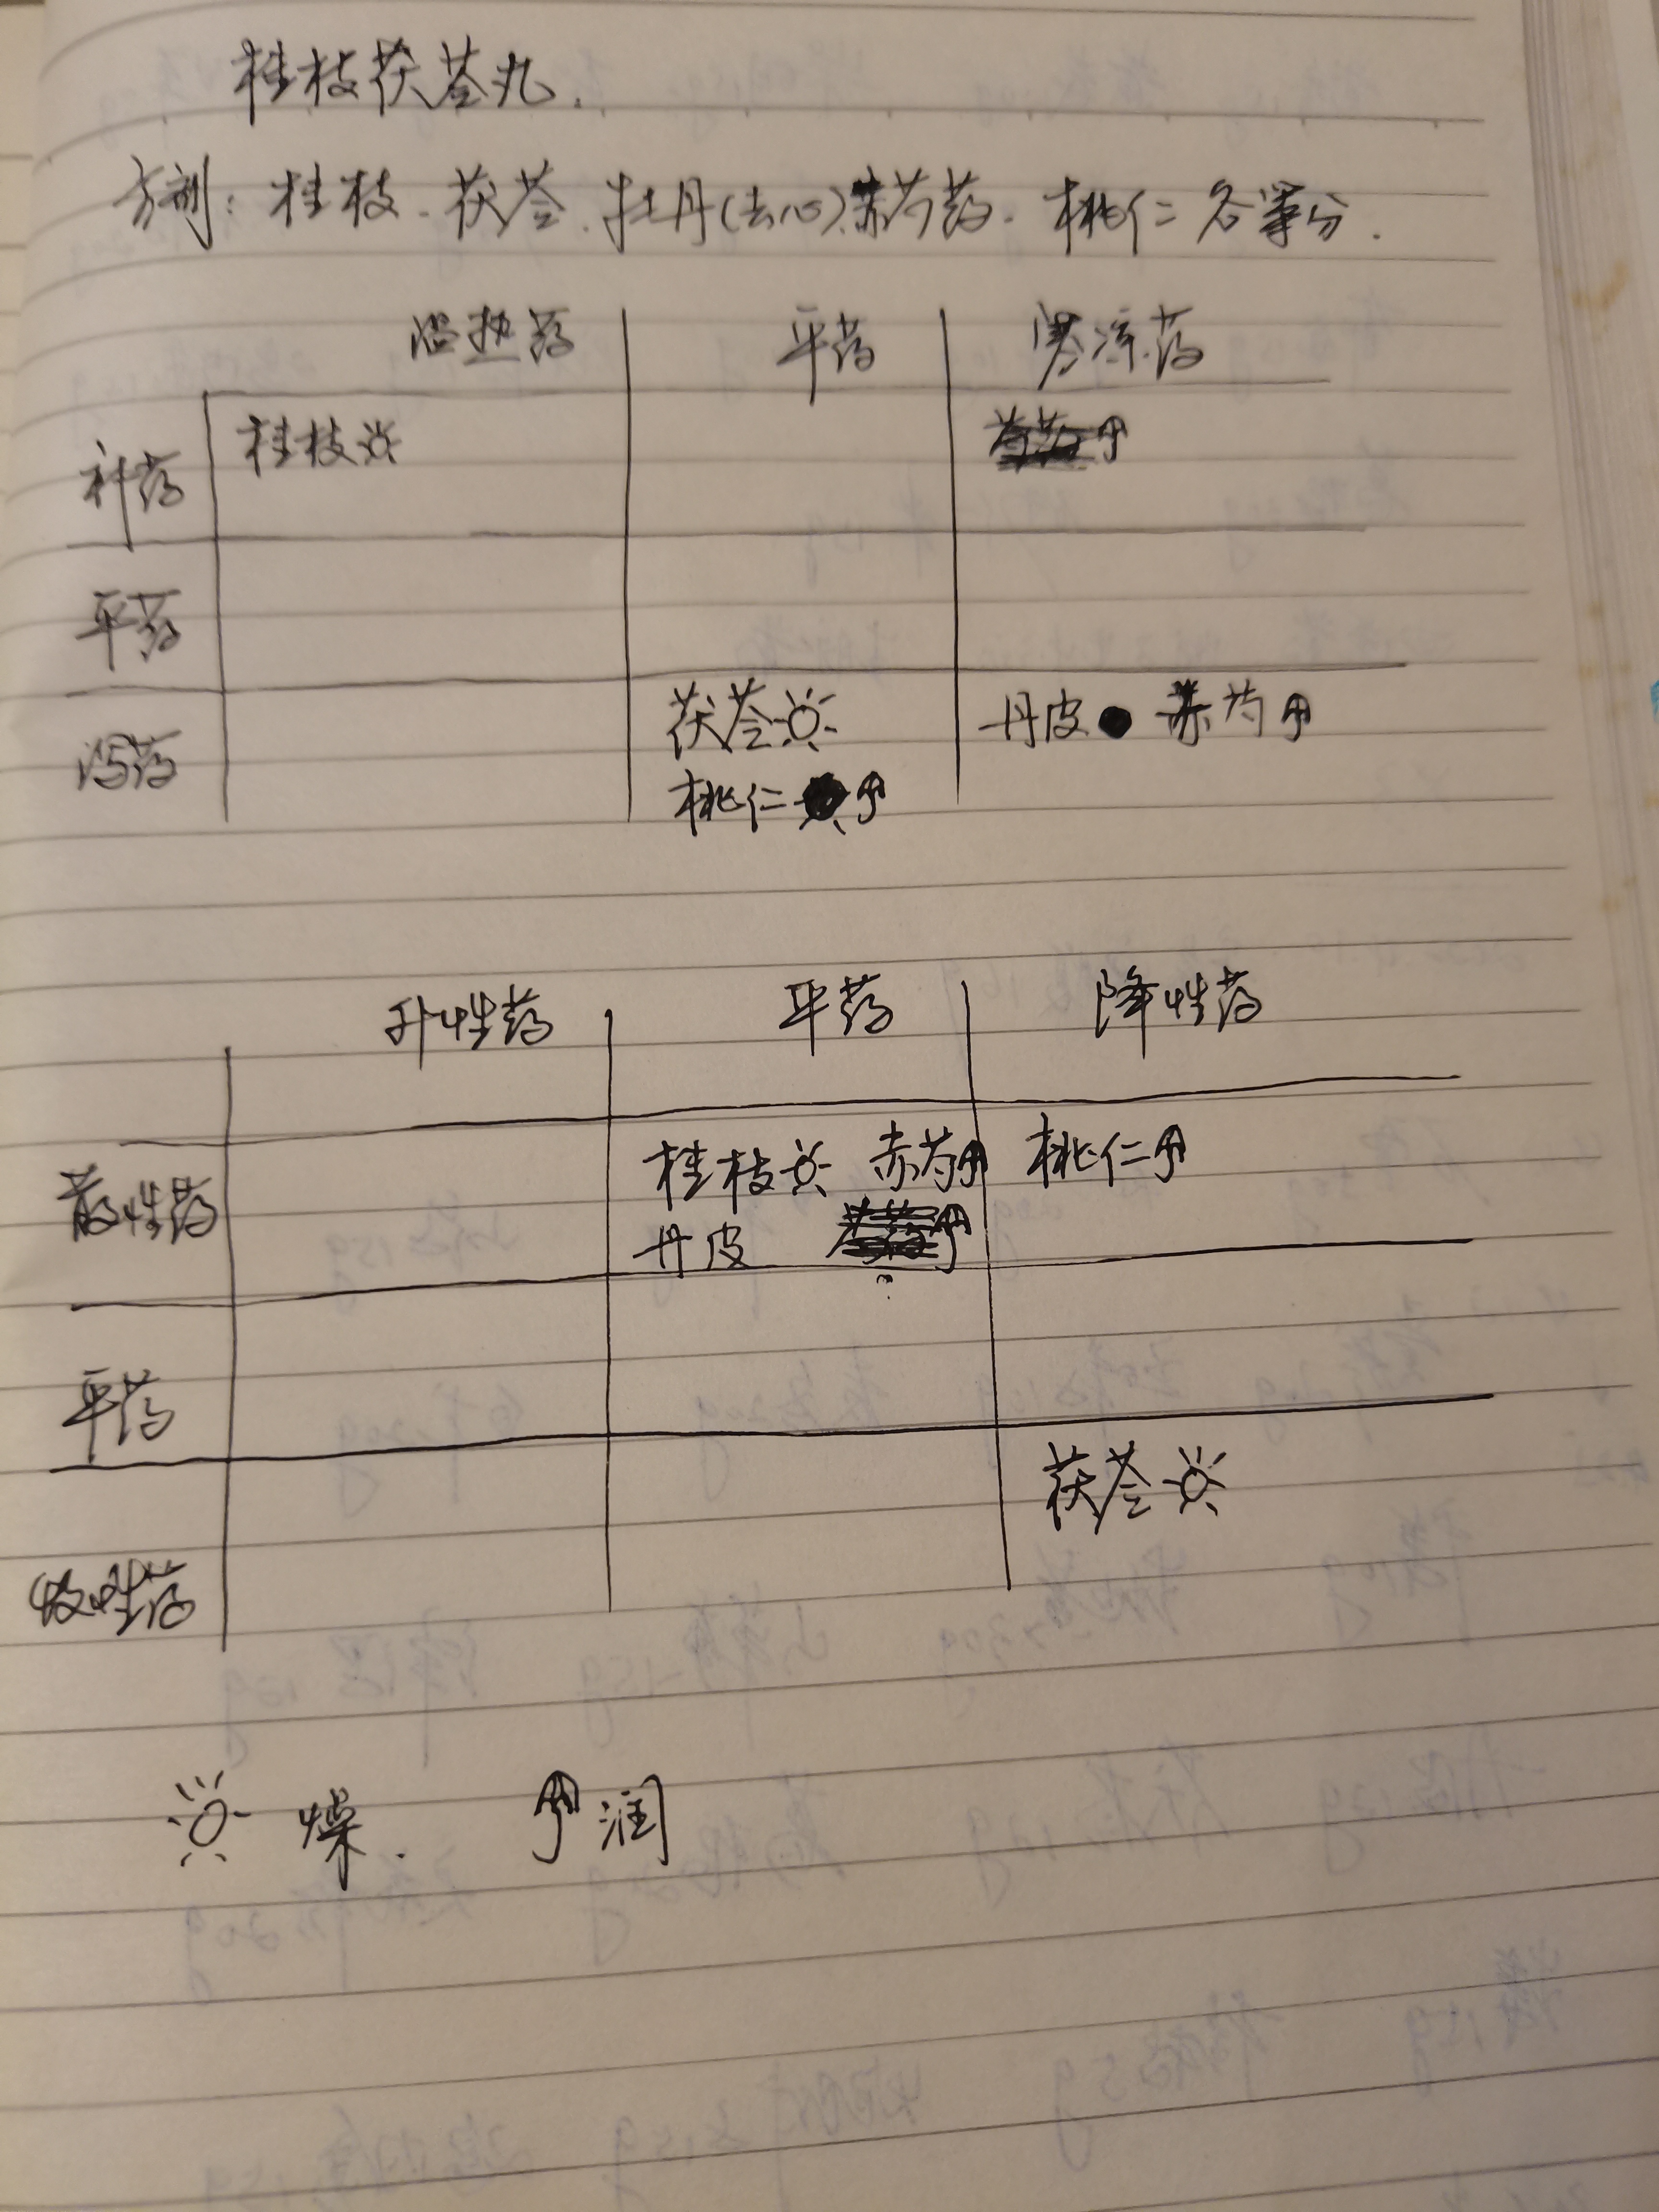 桂枝茯苓丸.
方剂：桂枝.茯苓.牡丹(去心).赤芍药.桃仁各等分.
温热药 平药 寒凉药
补药 桂枝
平药
泻药 茯苓 丹皮 赤芍
桃仁
升性药 平药 降性药
散性药 桂枝 赤芍 桃仁
丹皮
?
平药
茯苓
收性药
燥. 润